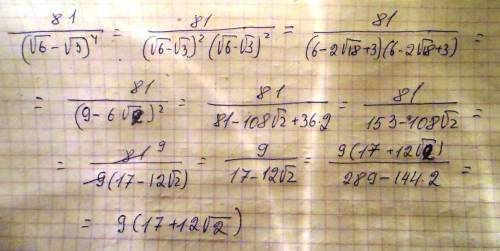 81/(√6-√3)⁴ = 81/((√6-√3)²(√6-√3)²) = 81/((6-2√18+3)(6-2√18+3)) =
= 81/(9-6√2)² = 81/(81-108√2+36·2) = 81/(153-108√2) =
= 81 9/(9(17-12√2)) = 9/(17-12√2) = 9(17+12√2)/(289-144·2) =
= 9(17+12√2)